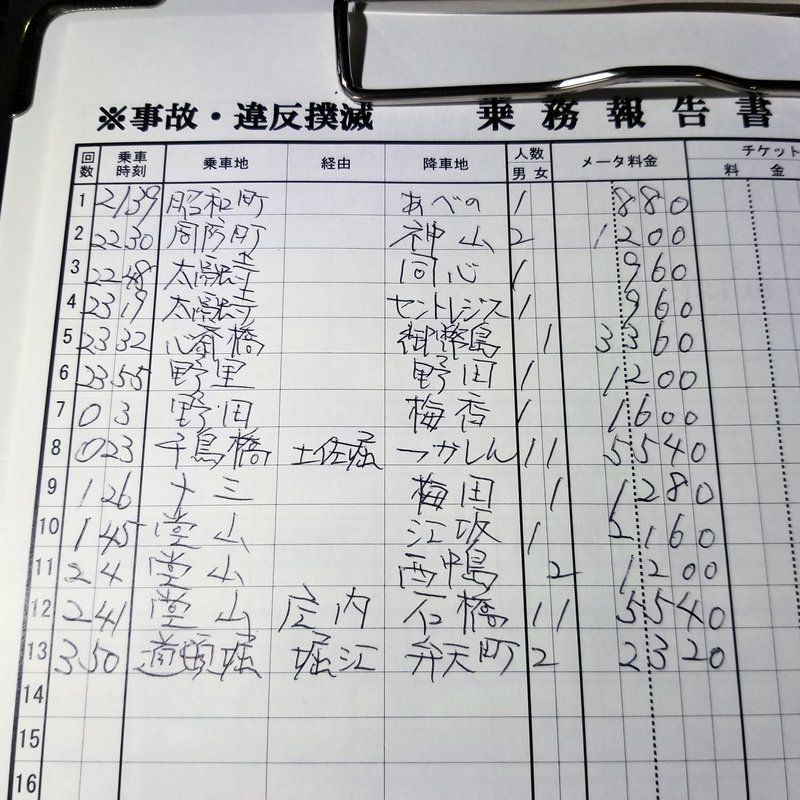 ※事故・違反撲滅 乗務報告書
回数 乗車時刻 乗車地 経由 降車地 人数 男 女 メータ料金 チケット 料 金
1 21 39 昭和町 あべの 1 880
2 22 30 周防町 神山 2 1200
3 22 48 太融寺 同心 1 960
4 23 19 太融寺 セントレジス 1 960
5 23 32 心斎橋 御幣島 1 3360
6 23 55 野里 野田 1 1200
7 0 3 野田 梅香 1 1600
8 0 23 千鳥橋 土佐堀 つかしん 1 1 5540
9 1 26 十三 梅田 1 1280
10 1 45 堂山 江坂 1 2160
11 2 4 堂山 西中島 2 1200
12 2 41 堂山 庄内 石橋 1 1 5540
13 3 50 道頓堀 堀江 弁天町 2 2320
14
15
16